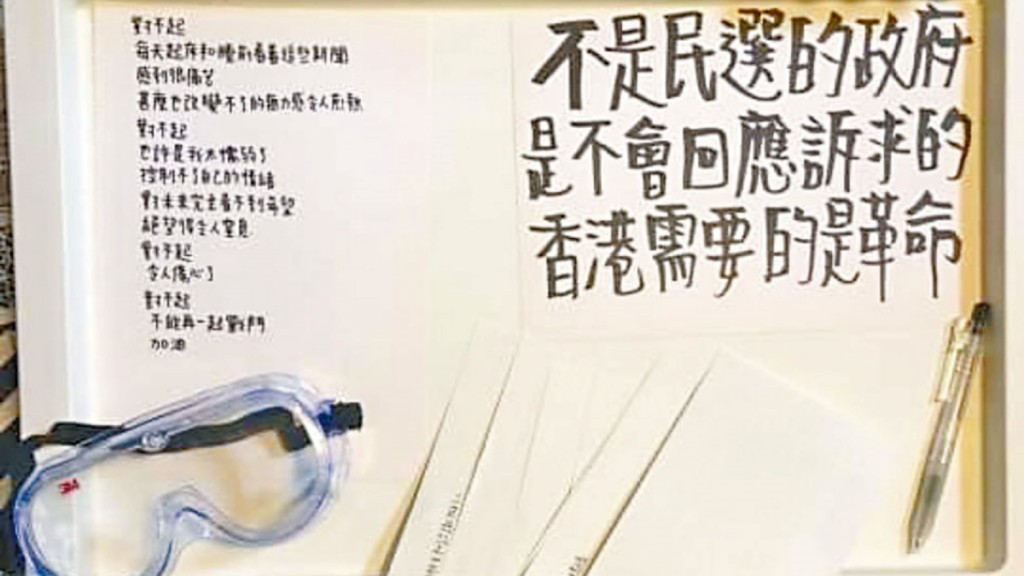 對不起
每天起床和睡前看着這些新聞
感到很痛苦
甚麼也改變不了的無力感令人煎熬
對不起
也許是我太懦弱了
控制不了自己的情緒
對未來完全看不到希望
絕望得令人窒息
對不起
令人傷心了
對不起
不能再一起戰鬥
加油
不是民選的政府
是不會回應訴求的
香港需要的是革命
3M